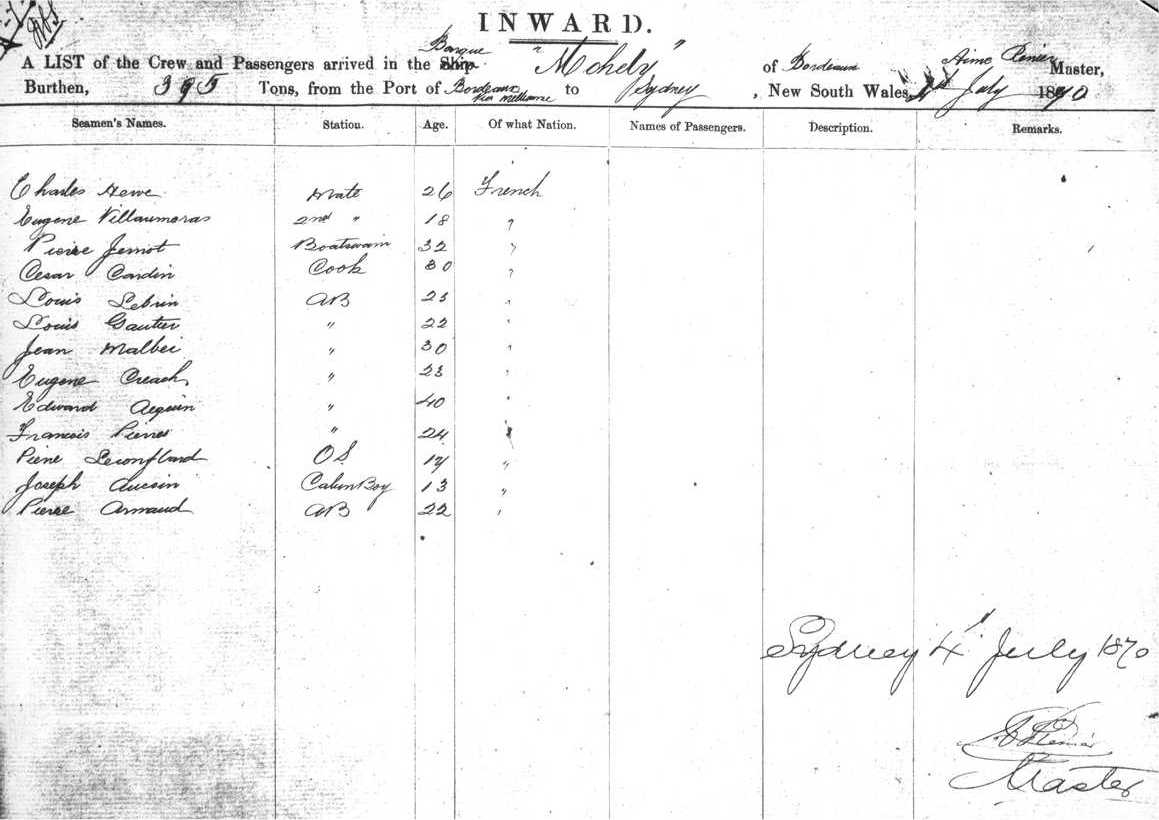 INWARD.
A LIST of the Crew and Passengers arrived in the Ship Barque "Mohely" of Bordeaux Aimé Renier Master,
Burthen, 395 Tons, from the Port of Bordeaux via Melbourne to Sydney, New South Wales, July 1870
Seamen's Names. Station. Age. Of what Nation. Names of Passengers. Description. Remarks.
Charles Hewe Mate 26 French
Eugene Villaumaras 2nd " 18 "
Pierre Jemot Boatswain 32 "
Cesar Cardin Cook 30 "
Louis Lebrin AB 25 "
Louis Gautier " 22 "
Jean Malbei " 30 "
Eugene Creach " 23 "
Edward Aeguin " 40 "
Francois Pierres " 24 "
Pierre OS 17 "
Joseph Aucoin Cabin Boy 13 "
Pierre Armaud AB 22 "
Sydney 4 July 1870
A Renier
Master